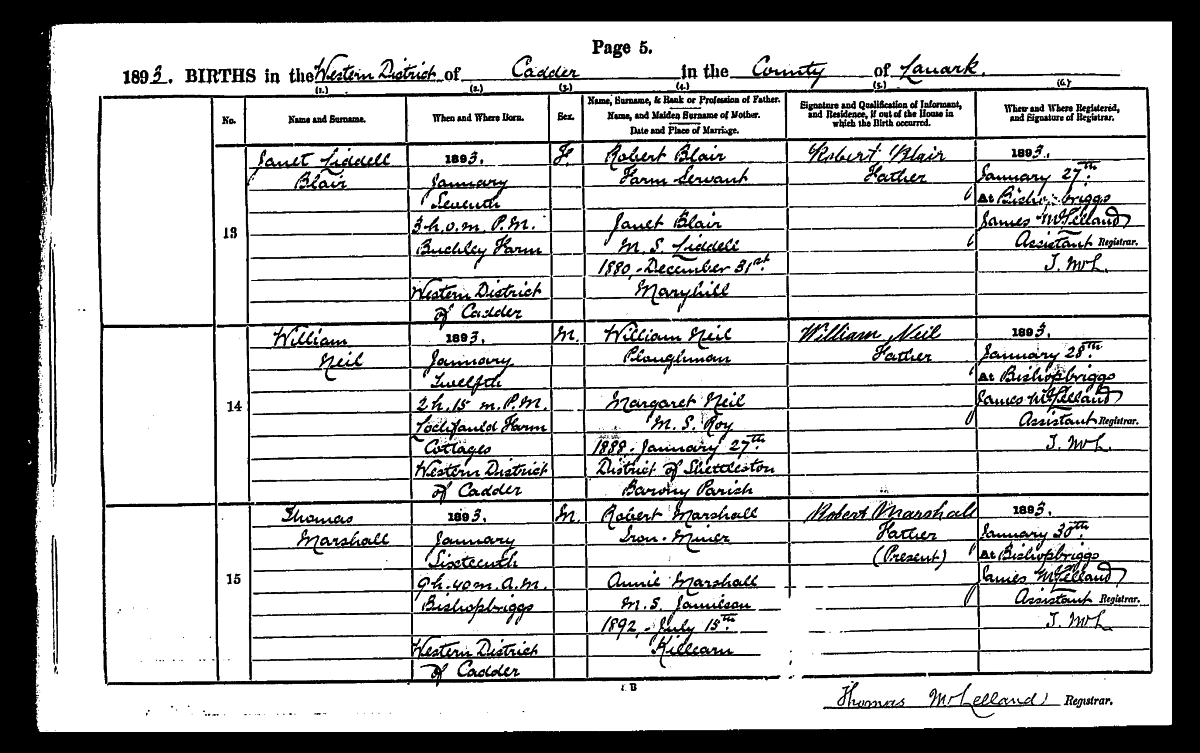 Page 5.
1893. BIRTHS in the Western District of Cadder in the County of Lanark.
(1.) (2.) (3.) (4.) (5.) (6.)
No. Name and Surname. When and Where Born. Sex. Name, Surname, & Rank or Profession of Father. Name, and Maiden Surname of Mother. Date and Place of Marriage. Signature and Qualification of Informant, and Residence, if out of the House in which the Birth occurred. When and Where Registered, and Signature of Registrar.
Janet Liddell 1893. F. Robert Blair Robert Blair 1893.
Blair January Farm Servant Father January 27th.
Seventh At Bishopbriggs
13 3 h. 0 m. P.M. Janet Blair James McLelland
Buchley Farm M.S. Liddell Assistant Registrar.
1880, December 31st. J. McL.
Western District Maryhill
of Cadder
William 1893. M. William Neil William Neil 1893.
Neil January Ploughman Father January 28th.
Twelfth At Bishopbriggs
14 2 h. 15 m. P.M. Margaret Neil James McLelland
Lochfauld Farm M.S. Roy Assistant Registrar.
Cottages 1888, January 27th. J. McL.
Western District District of Shettleston
of Cadder Barony Parish
Thomas 1893. M. Robert Marshall Robert Marshall 1893.
Marshall January Iron-Miner Father January 30th.
Sixteenth (Present) At Bishopbriggs
15 9 h. 40 m. A.M. Annie Marshall James McLelland
Bishopbriggs M.S. Jamieson Assistant Registrar.
1892, July 15th. J. McL.
Western District Killearn
of Cadder
Thomas McLelland Registrar.